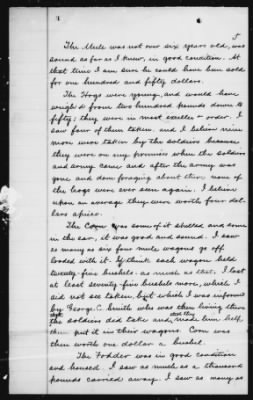 5
The Mule was not over six years old, was
sound as far as I knew, in good condition. At
that time I am sure he could have been sold
for one hundred and fifty dollars.
The Hogs were young, and would have
weigh'd from two hundred pounds down to
fifty; they were in most order. I
saw four of them taken. and I believe nine
more were taken by the soldiers because
they were on my premises when the soldiers
and army came and after the army was
gone and done foraging about there none of
the hogs were ever seen again. I believe
upon an average they were worth four dol-
lars apiece.
The Corn was some of it shelled and some
in the ear, it was good and sound. I saw
as many as six four mule wagons go off
loaded with it. I think each wagon held
twenty-five bushels. as much as that. I lost
at least seventy-five bushels more, which I
did not see taken, but which I was informed
by George C. Smith who was then living there
the soldiers did take and made him help
put it in their wagons. Corn was
then worth one dollar a bushel.
The Fodder was in good condition
and housed. I saw as much as a thousand
pounds carried away. I saw as many as